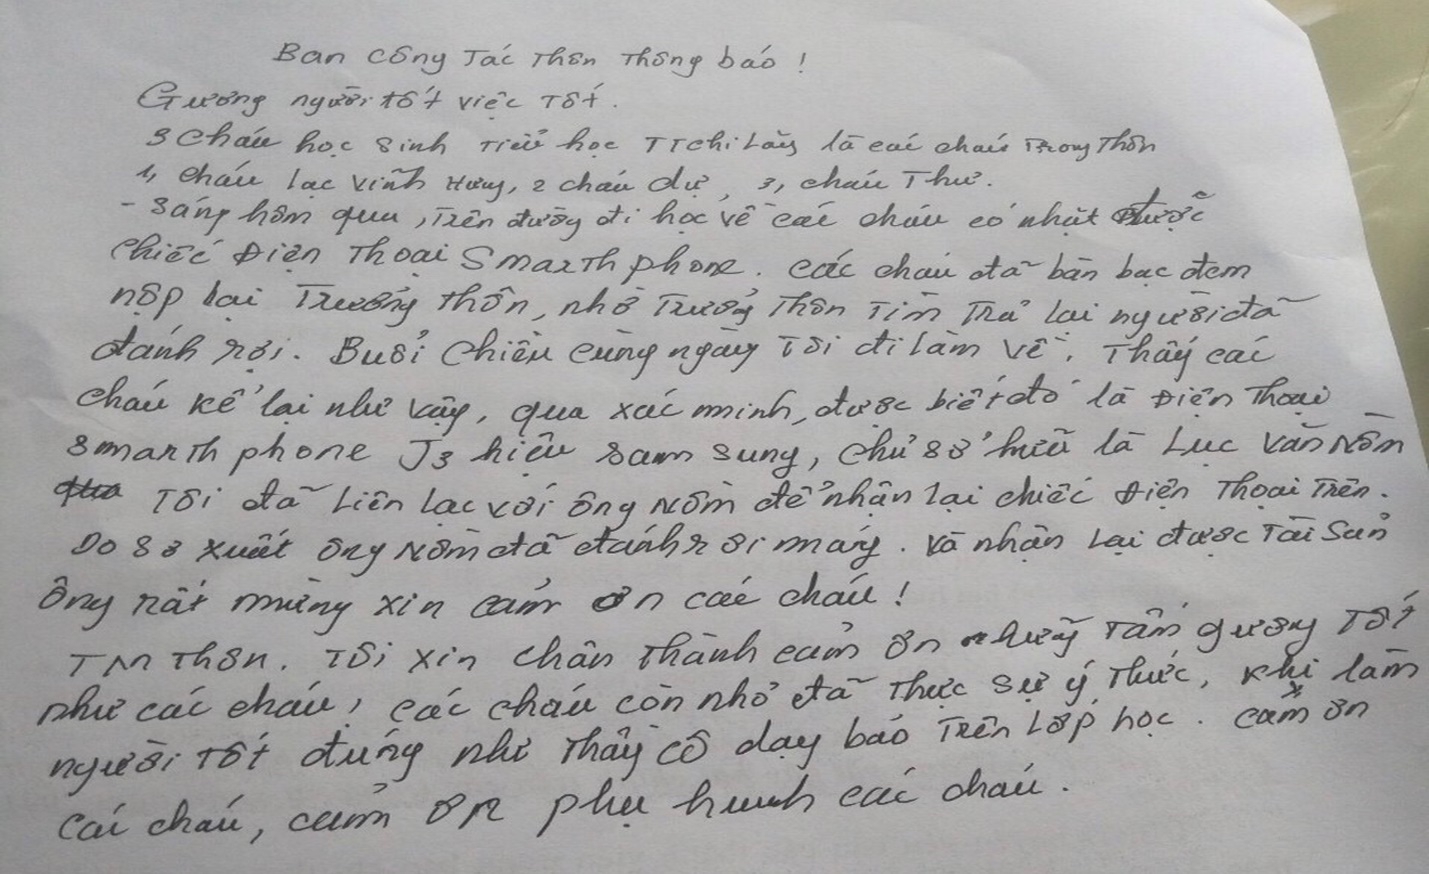 Ban công Tác Thôn Thông báo !
Gương người tốt việc Tốt.
3 cháu học sinh Tiểu học TT chi Lăng là các cháu Trong Thôn
1, cháu lạc vĩnh Hưng, 2 cháu dự, 3, cháu Thư.
- Sáng hôm qua, Trên đường đi học về các cháu có nhặt được
chiếc Điện Thoại Smarth phone. các cháu đã bàn bạc đem
nộp lại Trưởng thôn, nhờ Trưởng Thôn Tìm Trả lại người đã
đánh rơi. Buổi chiều cùng ngày Tôi đi làm về, Thấy các
cháu kể lại như vậy, qua xác minh, được biết đó là Điện Thoại
smarth phone J3 hiệu sam sung, chủ sở hữu là Lục văn Nồm
Tôi đã Liên lạc với ông Nồm để nhận lại chiếc Điện Thoại Trên.
Do sơ xuất ông Nồm đã đánh rơi máy. và nhận lại được Tài sản
ông rất mừng xin cảm ơn các cháu !
TM Thôn. Tôi xin chân thành cảm ơn những Tấm gương Tốt
như các cháu, các cháu còn nhỏ đã Thực sự ý Thức, khi làm
người Tốt đúng như Thầy cô dạy bảo Trên Lớp học. cảm ơn
các cháu, cảm ơn phụ huynh các cháu.